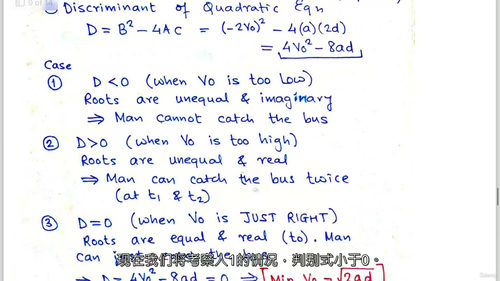 Discriminant of Quadratic Eqn
D = B² - 4AC = (-2V₀)² - 4(a)(2d)
= 4V₀² - 8ad
Case
① D < 0 (when Vo is too low)
Roots are unequal & imaginary
⇒ Man cannot catch the bus
② D>0 (when Vo is too high)
Roots are unequal & real
⇒ Man can catch the bus twice
(at t₁ & t₂)
③ D=0 (when Vo is JUST RIGHT)
Roots are equal & real (to). Man
can just
现在我们将考察人1的情况，判别式小于0。
⇒ D = 4V₀² - 8ad = 0 ⇒ Min V₀ = √2ad